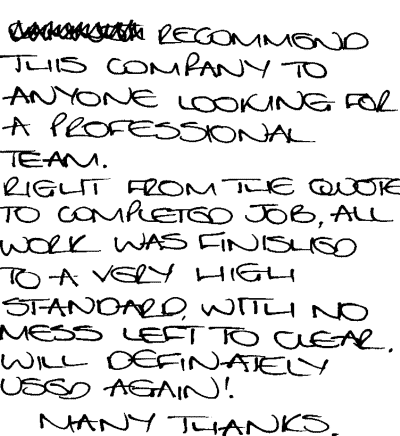 RECOMMEND
THIS COMPANY TO
ANYONE LOOKING FOR
A PROFESSIONAL
TEAM.
RIGHT FROM THE QUOTE
TO COMPLETED JOB, ALL
WORK WAS FINISHED
TO A VERY HIGH
STANDARD, WITH NO
MESS LEFT TO CLEAR.
WILL DEFINATELY
USED AGAIN!
MANY THANKS.